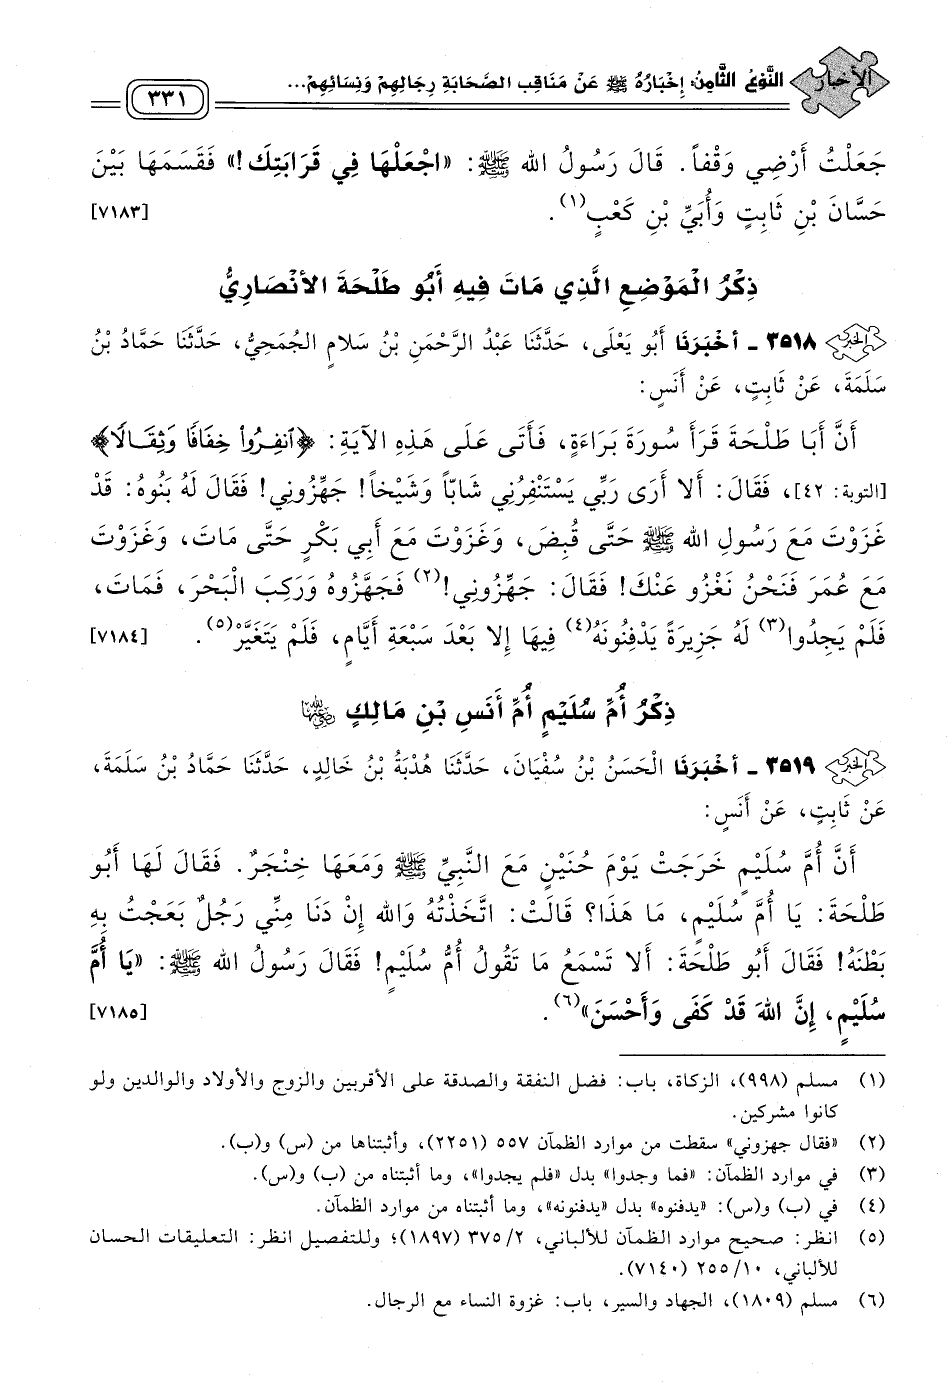 الأخبار
النَّوْعُ الثَّامِنُ: إِخْبَارُهُ ﷺ عَنْ مَنَاقِبِ الصَّحَابَةِ رِجَالِهِمْ وَنِسَائِهِمْ...
٣٣١
جَعَلْتُ أَرْضِي وَقْفاً. قَالَ رَسُولُ الله ﷺ: «اجْعَلْهَا فِي قَرَابَتِكَ!» فَقَسَمَهَا بَيْنَ
حَسَّانَ بْنِ ثَابِتٍ وَأُبَيِّ بْنِ كَعْبٍ(١). [٧١٨٣]
ذِكْرُ الْمَوْضِعِ الَّذِي مَاتَ فِيهِ أَبُو طَلْحَةَ الأَنْصَارِيُّ
٣٥١٨ ـ أخْبَرَنَا أَبُو يَعْلَى، حَدَّثَنَا عَبْدُ الرَّحْمَنِ بْنُ سَلَامٍ الْجُمَحِيُّ، حَدَّثَنَا حَمَّادُ بْنُ
سَلَمَةَ، عَنْ ثَابِتٍ، عَنْ أَنَسٍ:
أَنَّ أَبَا طَلْحَةَ قَرَأَ سُورَةَ بَرَاءَةٍ، فَأَتَى عَلَى هَذِهِ الآيَةِ: ﴿انْفِرُوا خِفَافًا وَثِقَالًا﴾
[التوبة: ٤٢]، فَقَالَ: أَلا أَرَى رَبِّي يَسْتَنْفِرُنِي شَابّاً وَشَيْخاً! جَهِّزُونِي! فَقَالَ لَهُ بَنُوهُ: قَدْ
غَزَوْتَ مَعَ رَسُولِ الله ﷺ حَتَّى قُبِضَ، وَغَزَوْتَ مَعَ أَبِي بَكْرٍ حَتَّى مَاتَ، وَغَزَوْتَ
مَعَ عُمَرَ فَنَحْنُ نَغْزُو عَنْكَ! فَقَالَ: جَهِّزُونِي!(٢) فَجَهَّزُوهُ وَرَكِبَ الْبَحْرَ، فَمَاتَ،
فَلَمْ يَجِدُوا(٣) لَهُ جَزِيرَةً يَدْفِنُونَهُ(٤) فِيهَا إِلا بَعْدَ سَبْعَةِ أَيَّامٍ، فَلَمْ يَتَغَيَّرْ(٥). [٧١٨٤]
ذِكْرُ أُمِّ سُلَيْمٍ أُمِّ أَنَسِ بْنِ مَالِكٍ رضي الله عنها
٣٥١٩ ـ أخْبَرَنَا الْحَسَنُ بْنُ سُفْيَانَ، حَدَّثَنَا هُدْبَةُ بْنُ خَالِدٍ، حَدَّثَنَا حَمَّادُ بْنُ سَلَمَةَ،
عَنْ ثَابِتٍ، عَنْ أَنَسٍ:
أَنَّ أُمَّ سُلَيْمٍ خَرَجَتْ يَوْمَ حُنَيْنٍ مَعَ النَّبِيِّ ﷺ وَمَعَهَا خِنْجَرٌ. فَقَالَ لَهَا أَبُو
طَلْحَةَ: يَا أُمَّ سُلَيْمٍ، مَا هَذَا؟ قَالَتْ: اتَّخَذْتُهُ وَالله إِنْ دَنَا مِنِّي رَجُلٌ بَعَجْتُ بِهِ
بَطْنَهُ! فَقَالَ أَبُو طَلْحَةَ: أَلا تَسْمَعُ مَا تَقُولُ أُمُّ سُلَيْمٍ! فَقَالَ رَسُولُ الله ﷺ: «يَا أُمَّ
سُلَيْمٍ، إِنَّ اللهَ قَدْ كَفَى وَأَحْسَنَ»(٦). [٧١٨٥]
(١) مسلم (٩٩٨)، الزكاة، باب: فضل النفقة والصدقة على الأقربين والزوج والأولاد والوالدين ولو
كانوا مشركين.
(٢) «فقال جهزوني» سقطت من موارد الظمآن ٥٥٧ (٢٢٥١)، وأثبتناها من (س) و(ب).
(٣) في موارد الظمآن: «فما وجدوا» بدل «فلم يجدوا»، وما أثبتناه من (ب) و(س).
(٤) في (ب) و(س): «يدفنوه» بدل «يدفنونه»، وما أثبتناه من موارد الظمآن.
(٥) انظر: صحيح موارد الظمآن للألباني، ٣٧٥/٢ (١٨٩٧)؛ وللتفصيل انظر: التعليقات الحسان
للألباني، ٢٥٥/١٠ (٧١٤٠).
(٦) مسلم (١٨٠٩)، الجهاد والسير، باب: غزوة النساء مع الرجال.